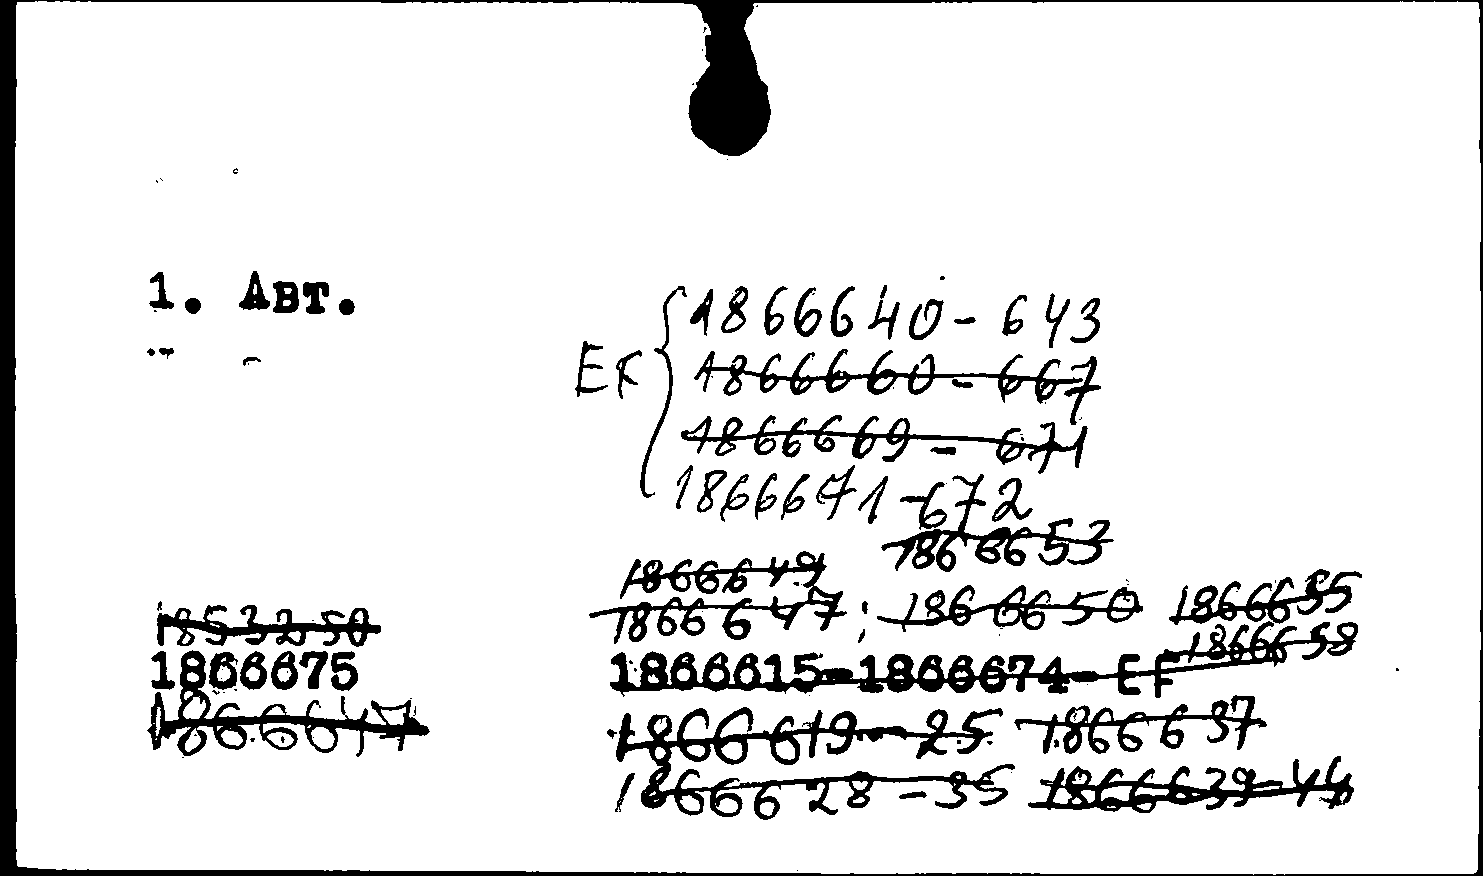 1. Авт.
EF
1866640-643
1866660-667
1866669-671
1866671-672
1866653
1866649
1853250 1866647; 1866650 1866655
1866675 1866615-1866674- EF 1866658
1866647 1866619-25 1866637
1866628-35 1866639-44